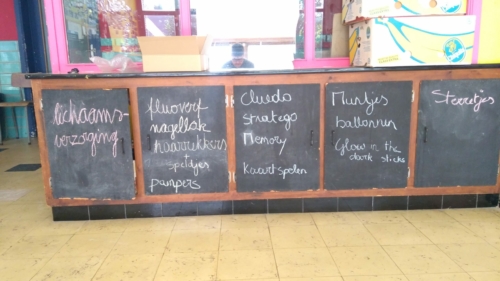 lichaams-
verzorging
fluoverf
nagellak
haarrekkers
+
speldjes
pampers
Cluedo
stratego
Memory
kaartspelen
Muntjes
ballonnen
Glow in the
dark sticks
Sterretjes